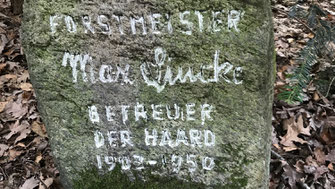 FORSTMEISTER
Max Zucke
BETREUER
DER HAARD
1903-1950